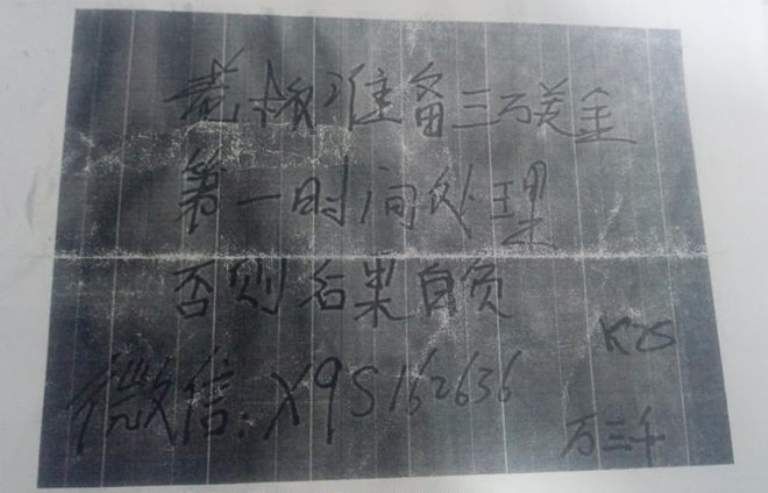 老板准备三万美金
第一时间处理
否则后果自负
K25
微信:X9S162636
万三千